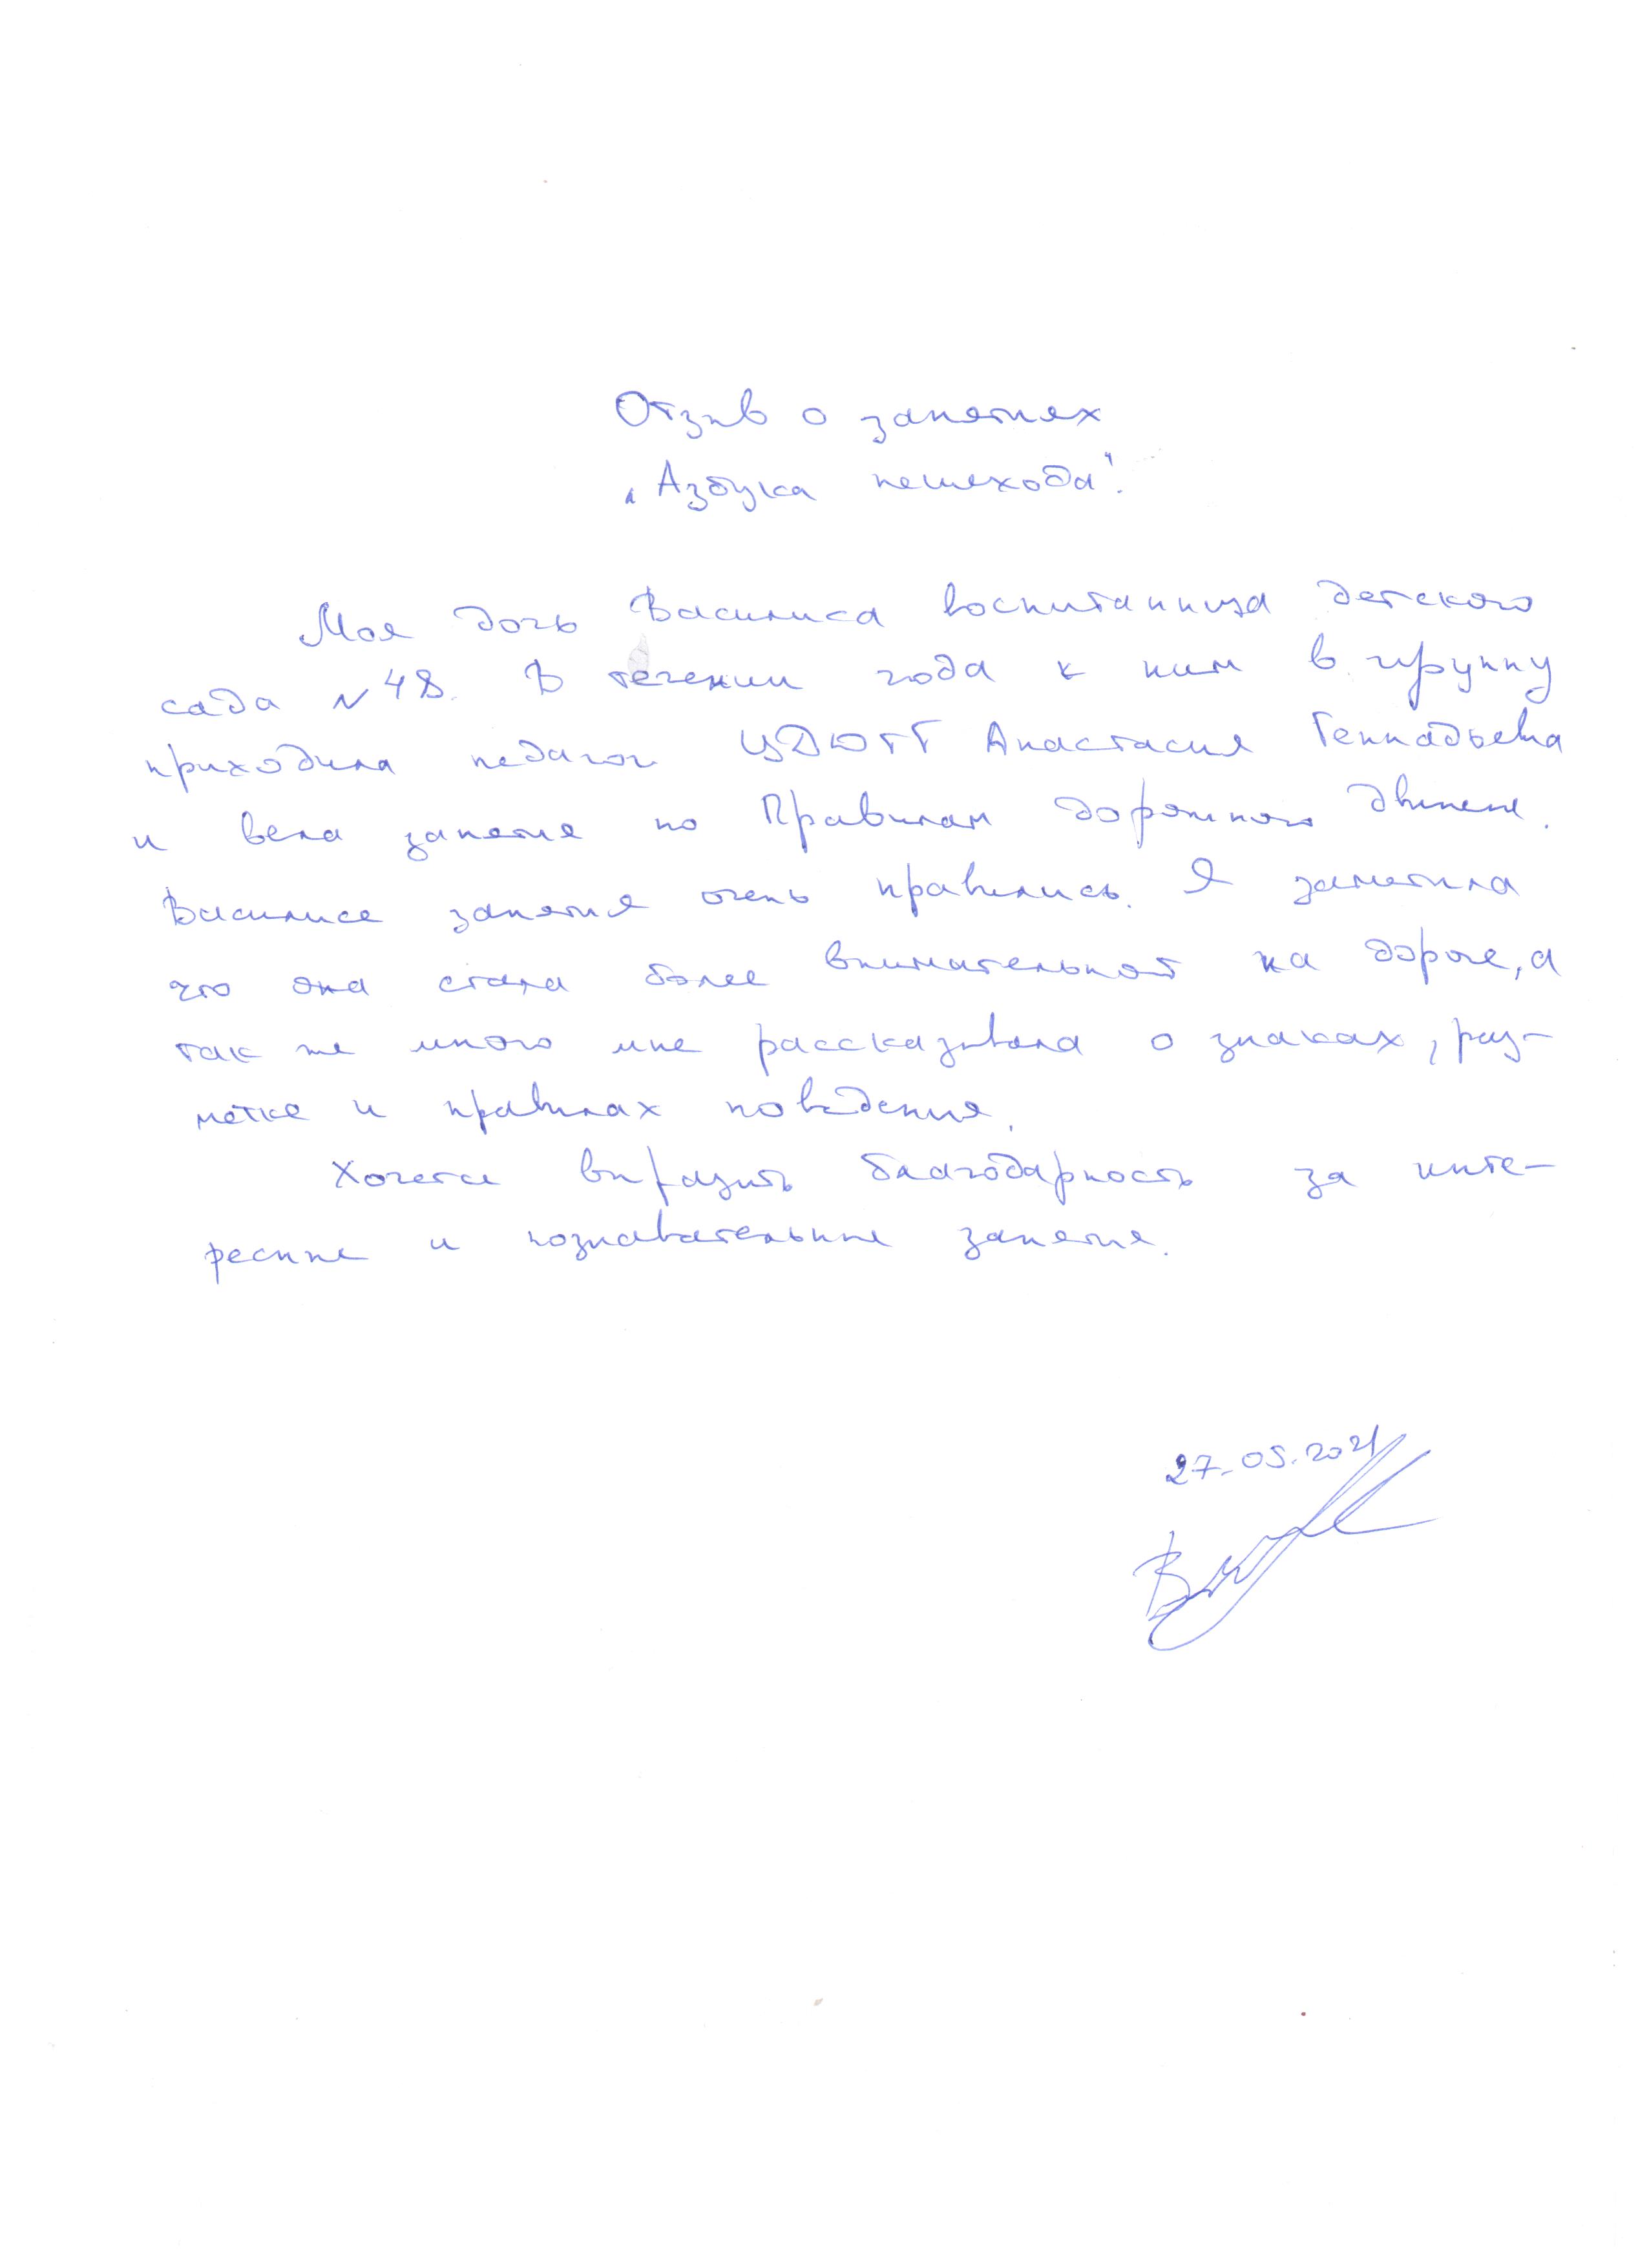 Отзыв о занятиях
„Азбука пешехода“.
Моя дочь Василиса воспитанница детского
сада N48. В течении года к ним в группу
приходила педагог ЦДЮТТ Анастасия Геннадьевна
и вела занятия по Правилам дорожного движения.
Василисе занятия очень нравились. Я заметила
что она стала более внимательной на дороге, а
так же много мне рассказывала о знаках, раз-
метке и правилах поведения.
Хочется выразить благодарность за инте-
ресные и познавательные занятия.
27.05.2021